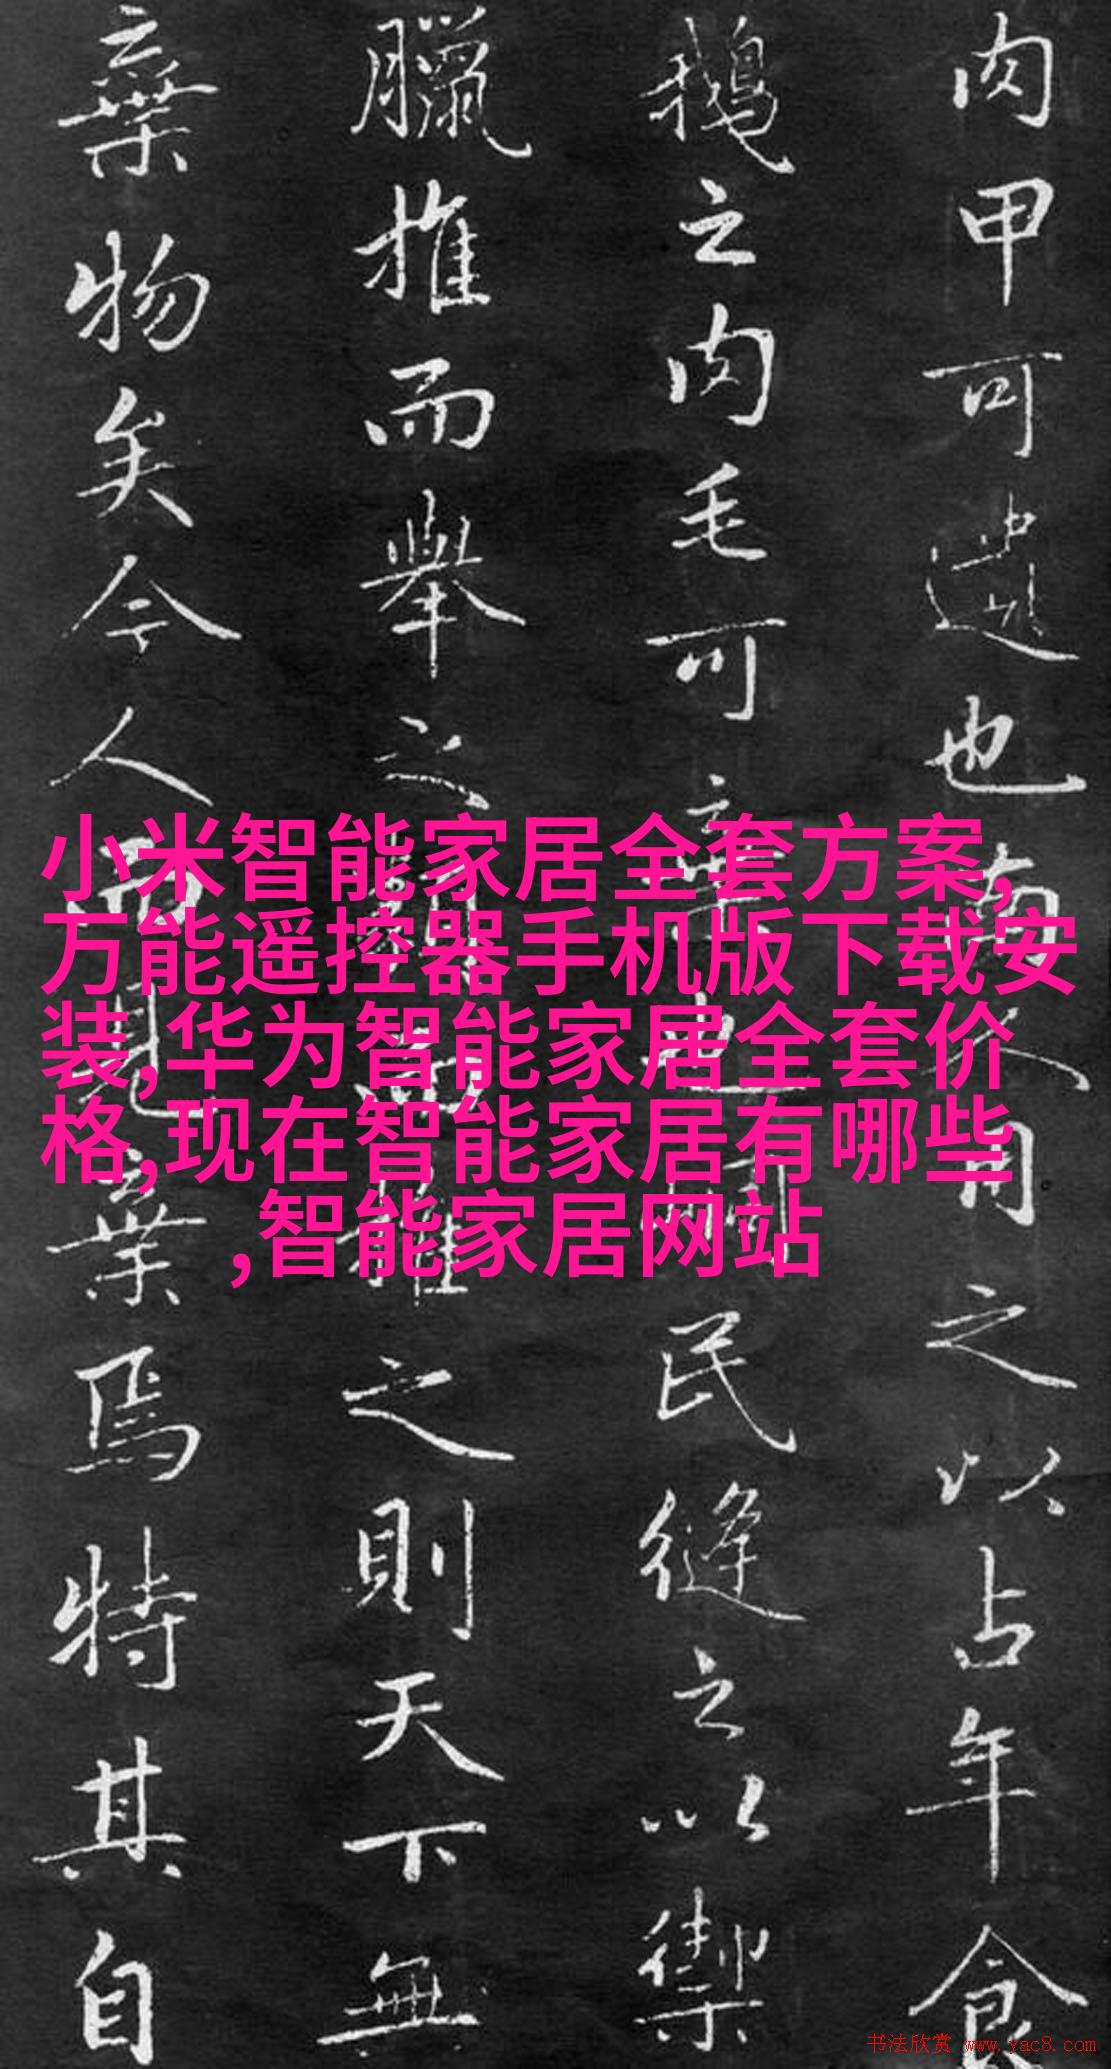 肉甲可遺也南人用之以占年食
鵝之肉毛可棄也峒民縫之以禦
臘推而舉之類而推之則天下無
棄物矣今人而見棄焉特其自
小米智能家居全套方案,
万能遥控器手机版下载安
装,华为智能家居全套价
格,现在智能家居有哪些
,智能家居网站
书法欣赏 www.yac8.com